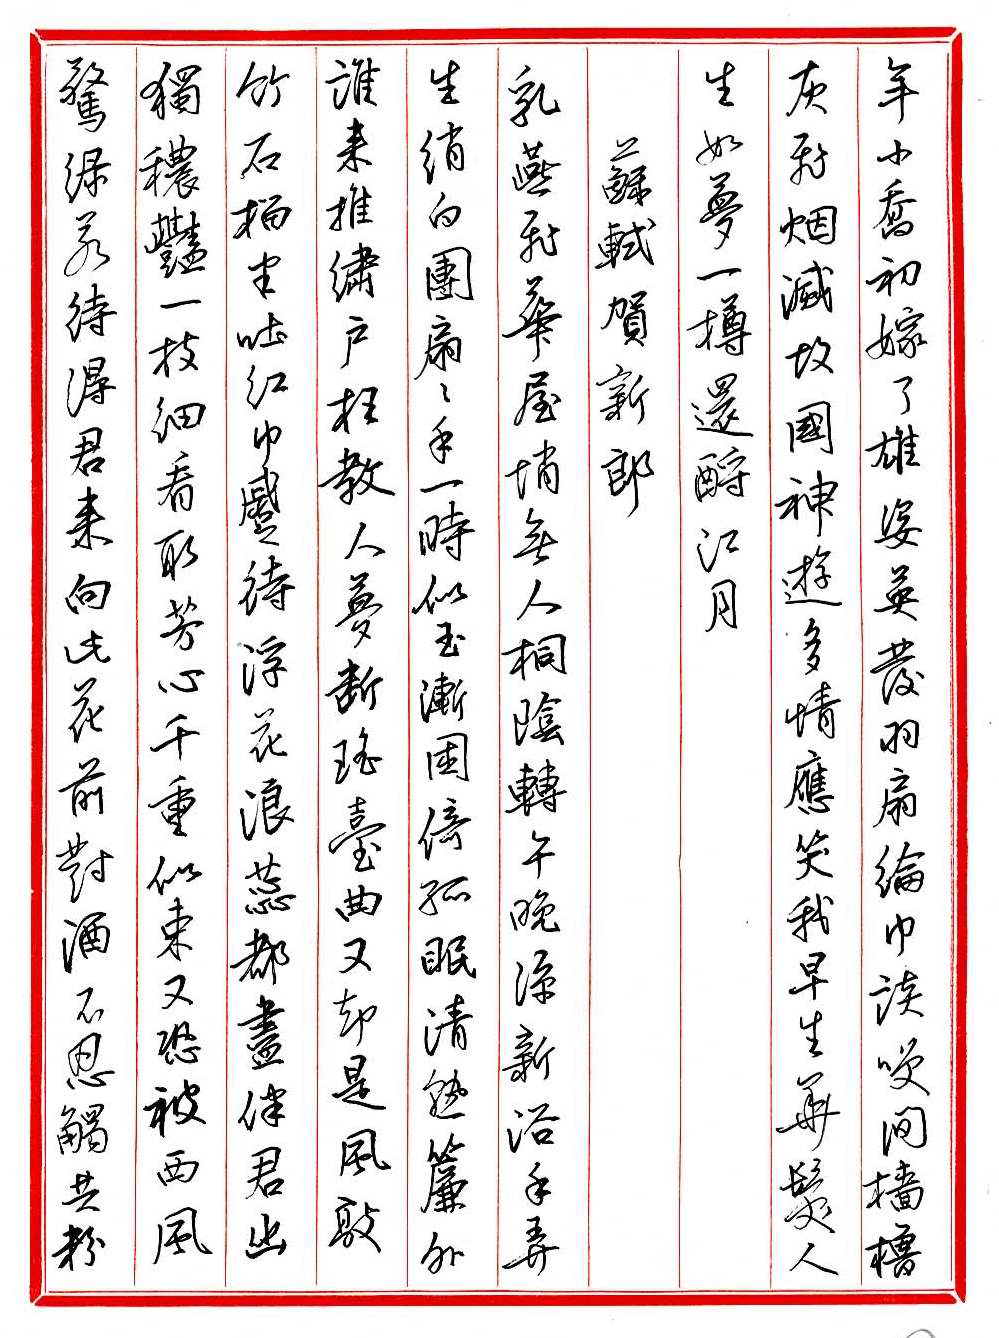 年小喬初嫁了雄姿英發羽扇綸巾談笑間檣櫓
灰飛烟滅故國神遊多情應笑我早生華髮人
生如夢一樽還酹江月
蘇軾賀新郎
乳燕飛華屋悄無人桐陰轉午晚涼新浴手弄
生綃白團扇〻手一時似玉漸困倚孤眠清熟簾外
誰来推繡户枉教人夢斷瑤臺曲又却是風敲
竹石榴半吐紅巾蹙待浮花浪蕊都盡伴君幽
獨穠艷一枝細看取芳心千重似束又恐被西風
驚綠若待得君来向此花前對酒不忍觸共粉